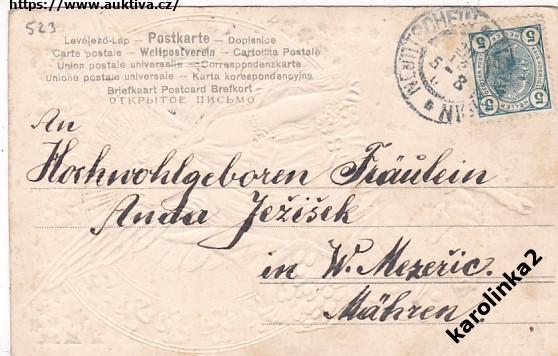 https://www.auktiva.cz/
523
Levelező-Lap — Postkarte — Dopisnice
Carte postale — Weltpostverein — Cartolina Postale
Union postale universelle — Correspondenzkarte
Unione postale universale — Karta korespondencyjna
Briefkaart Postcard Brefkort
ОТКРЫТОЕ ПИСЬМО
5 5
5 5
An
Hochwohlgeboren Fräulein
Anda Ježišek
in W. Mezeřic.
Mähren
karolinka2